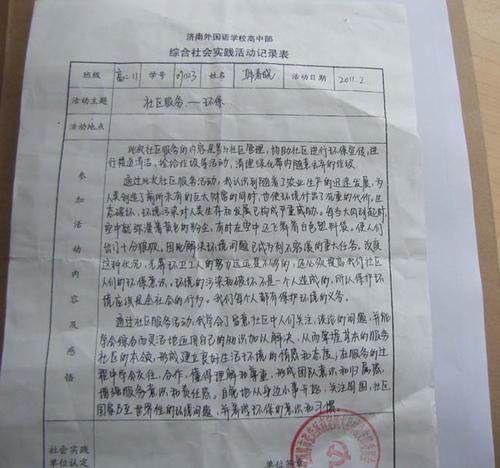 济南外国语学校高中部
综合社会实践活动记录表
班级 高二11 学号 姓名 活动日期 2011.2
活动主题 社区服务——环保
活动地点
参加活动内容及感悟
此次社区服务的内容是参与社区管理，协助社区进行环保宣传，进
行楼道清洁，捡拾垃圾等活动，清理绿化带内随意丢弃的垃圾。
通过此次社区服务活动，我认识到随着工农业生产的迅速发展，为
人类创造了前所未有的巨大财富的同时，也使环境付出了沉重的代价。生
态破坏、环境污染对人类生存和发展已构成严重威胁。每当大风刮起时，
空中总弥漫着黄色的粉尘，有时在空中还飞舞着白色塑料袋，使人
们出门十分艰难。因此解决环境问题已成为刻不容缓的重大任务。改良
这种状况，光靠环卫工人的努力远远是不够的，还必须提高我们社区
人们的环保意识，环境的污染和破坏不是一个人造成的，所以保护环
境应该是全社会的行为。我们每个人都有保护环境的义务。
通过社区服务活动，我学会了留意社区中人们关注、谈论的问题，并能
学会综合而灵活地运用自己的知识加以解决，从而掌握基本的服务
社区的本领，形成建立良好生活环境的情感和态度，在服务的过
程中学会交往、合作，懂得理解和尊重，形成团队意识和归属感，
增强服务意识和责任感。自觉地从身边小事开始，关注周围、社区、
国家乃至世界性的环境问题，并养成环保的意识和习惯。
社会实践
单位认定
单位签章